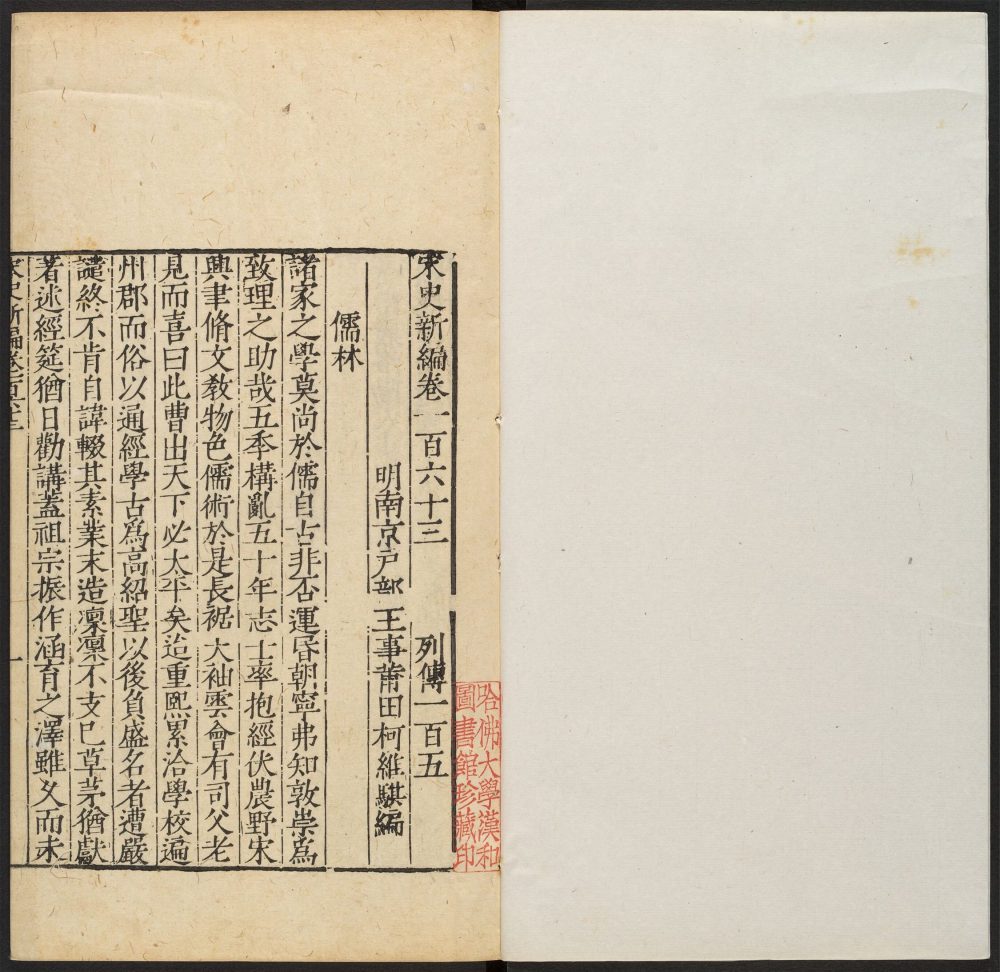 宋史新編卷一百六十三 列傳一百五
明南京戶部主事莆田柯維騏編
儒林
諸家之學莫尚於儒自古非否運昏朝寧弗知敦崇爲
致理之助哉五季構亂五十年志士率抱經伏農野宋
興聿脩文教物色儒術於是長裾大袖雲會有司父老
見而喜曰此曹出天下必太平矣迨重熈累洽學校遍
州郡而俗以通經學古爲高紹聖以後負盛名者遭嚴
譴終不肯自諱輟其素業末造凜凜不支巳草茅猶獻
著述經筵猶日勸講蓋祖宗振作涵育之澤雖久而未
宋史新編卷一百六十三 一
哈佛大學漢和
圖書館珍藏印